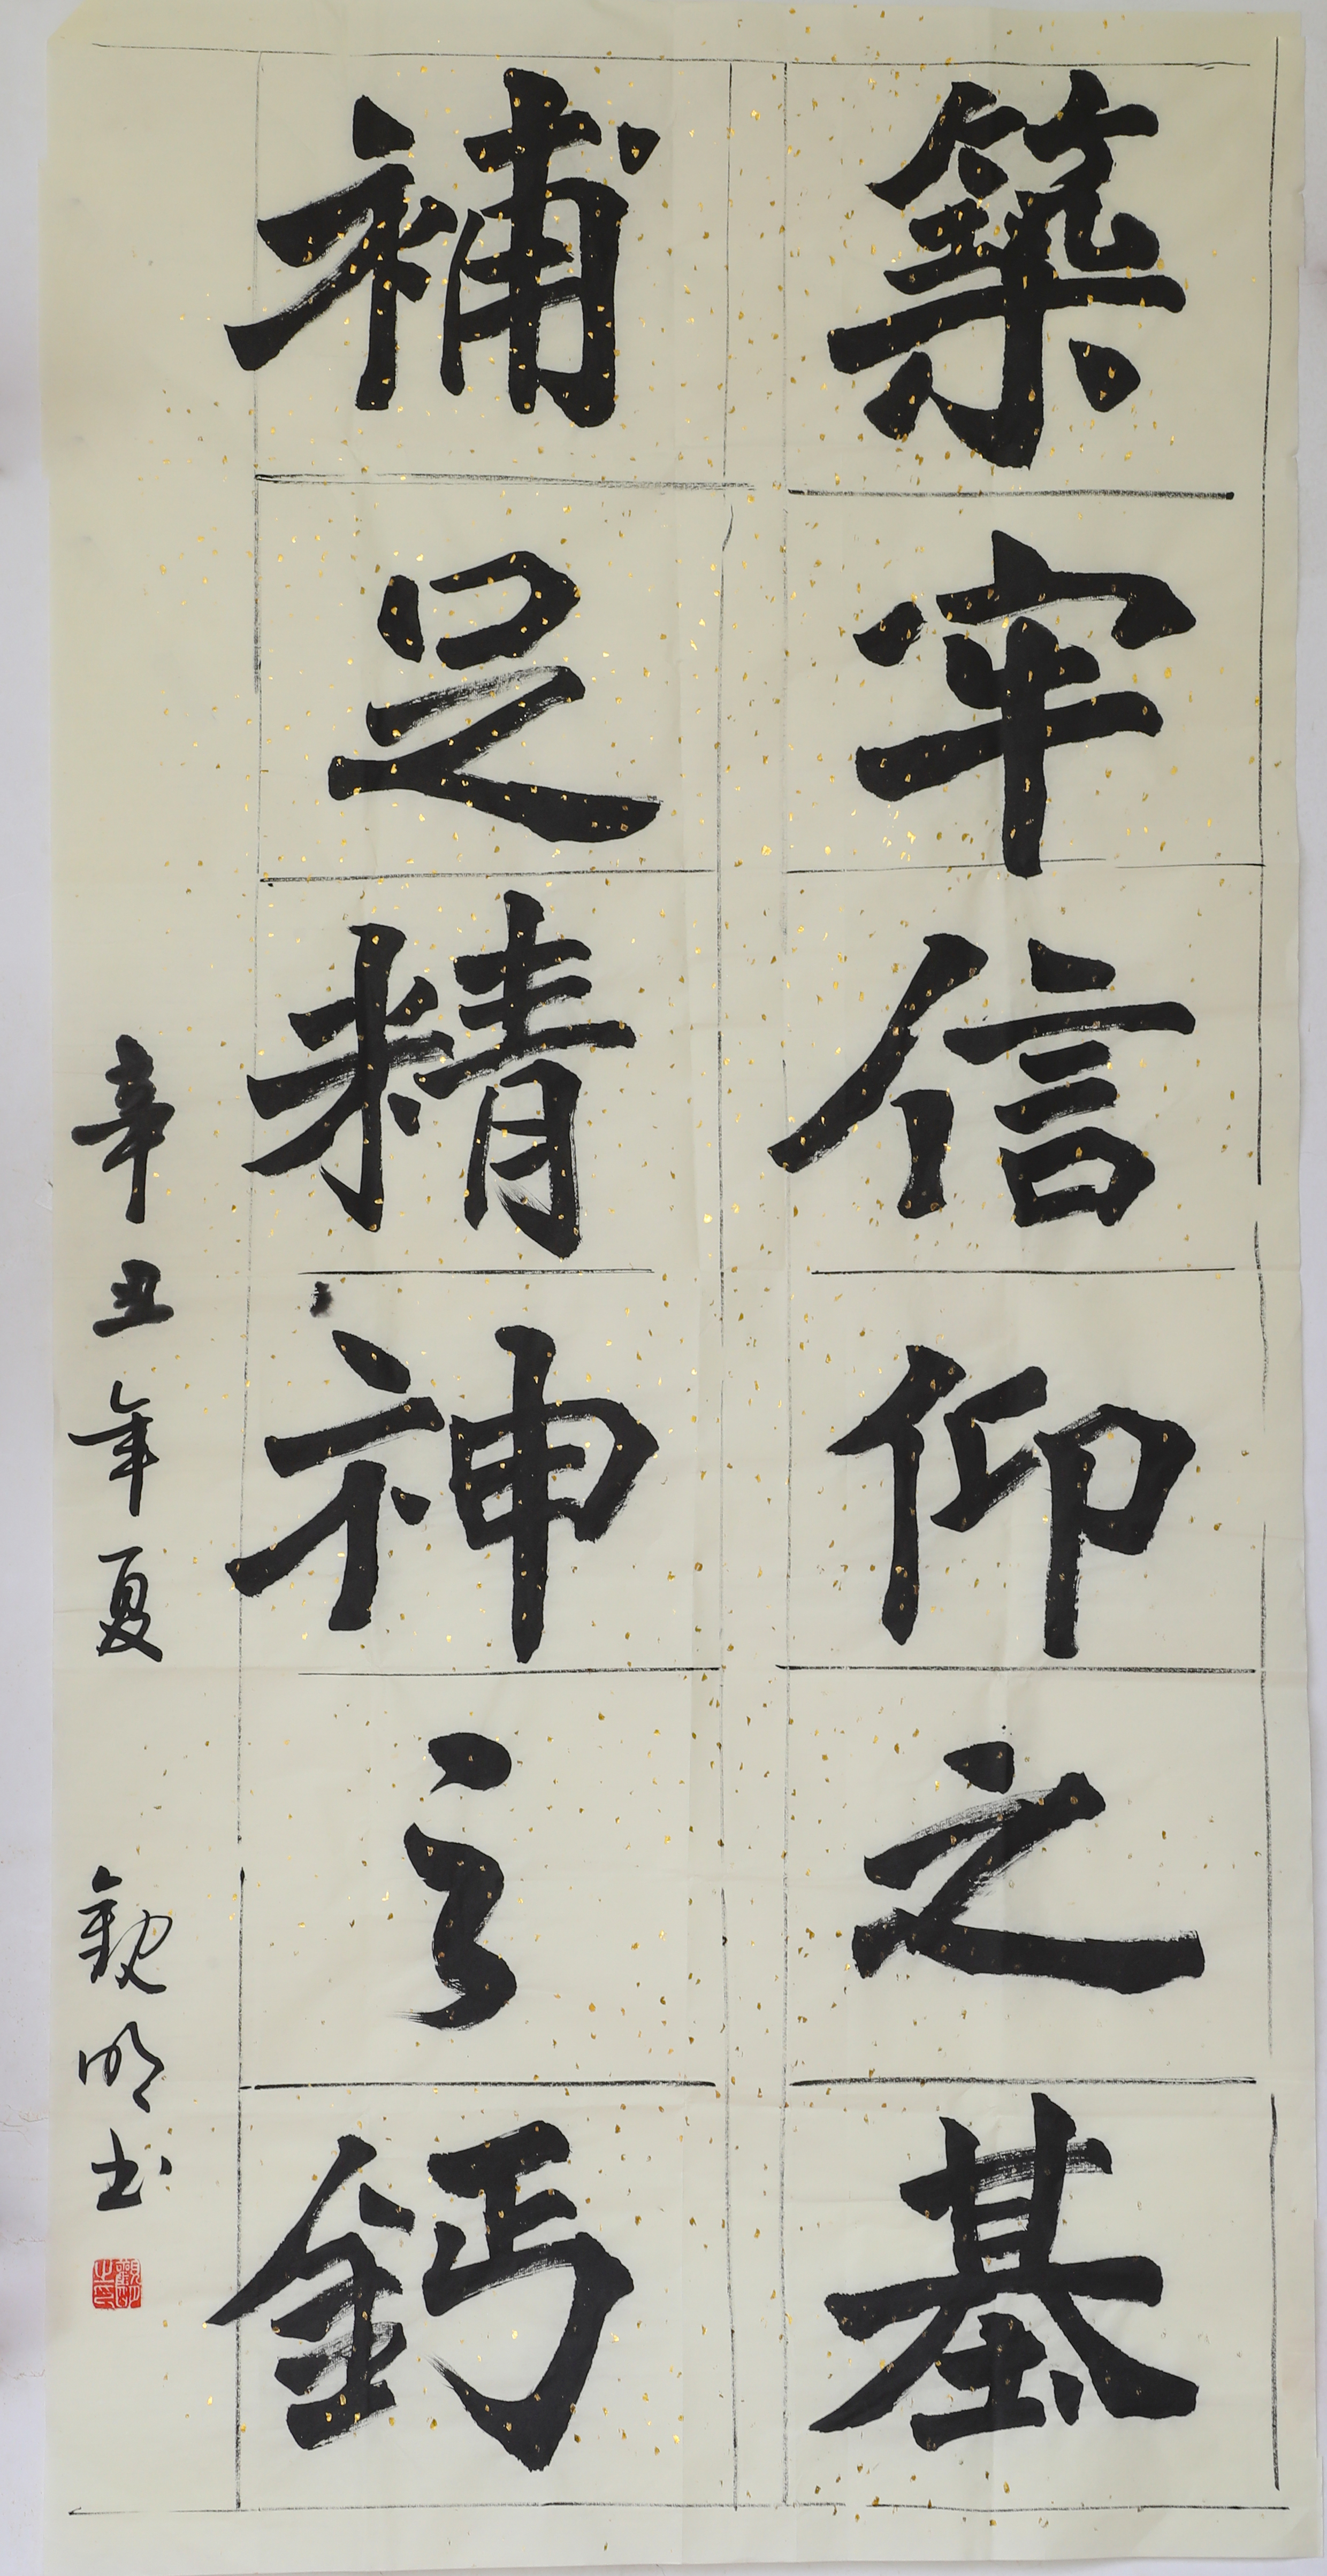 築牢信仰之基
補足精神之鈣
辛丑年夏 觀明书